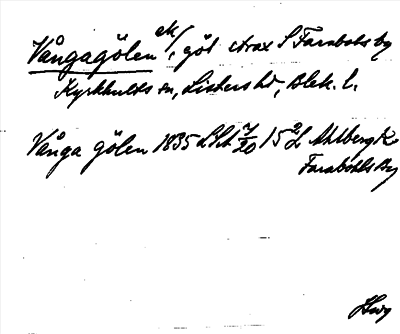 Vångagölen ek/, göl strax S Farabols by
Kyrkhults sn, Listers hd, Blek. l.
Vånga gölen 1835 LSA 7/20 15 2/2 Ahlberg K.
Farabohls By